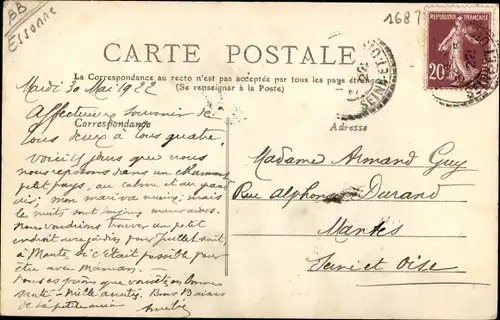 BB
Essonne
16878
CARTE POSTALE
REPUBLIQUE FRANÇAISE
20c
La Correspondance au recto n'est pas acceptée par tous les pays étrangers
(Se renseigner à la Poste)
Correspondance
Adresse
Mardi 30 Mai 1922
Affectueux Souvenir de
tous deux à tous quatre,
voici jours que nous
nous reposons dans un charmant
petit pays, au calme et au grand
mon mari va mieux, mais
les nuits sont toujours mauvaises.
Nous voudrions trouver un petit
endroit avec jardin pour Juillet soit,
à Mante, si c'était possible pour
être avec Maman.
nous espérons que vous êtes en bonne
santé - mille amitiés, Bons Baisers
de la petite amie
Madame Armand Guy
Rue alphonse Durand
Mantes
Seine et Oise